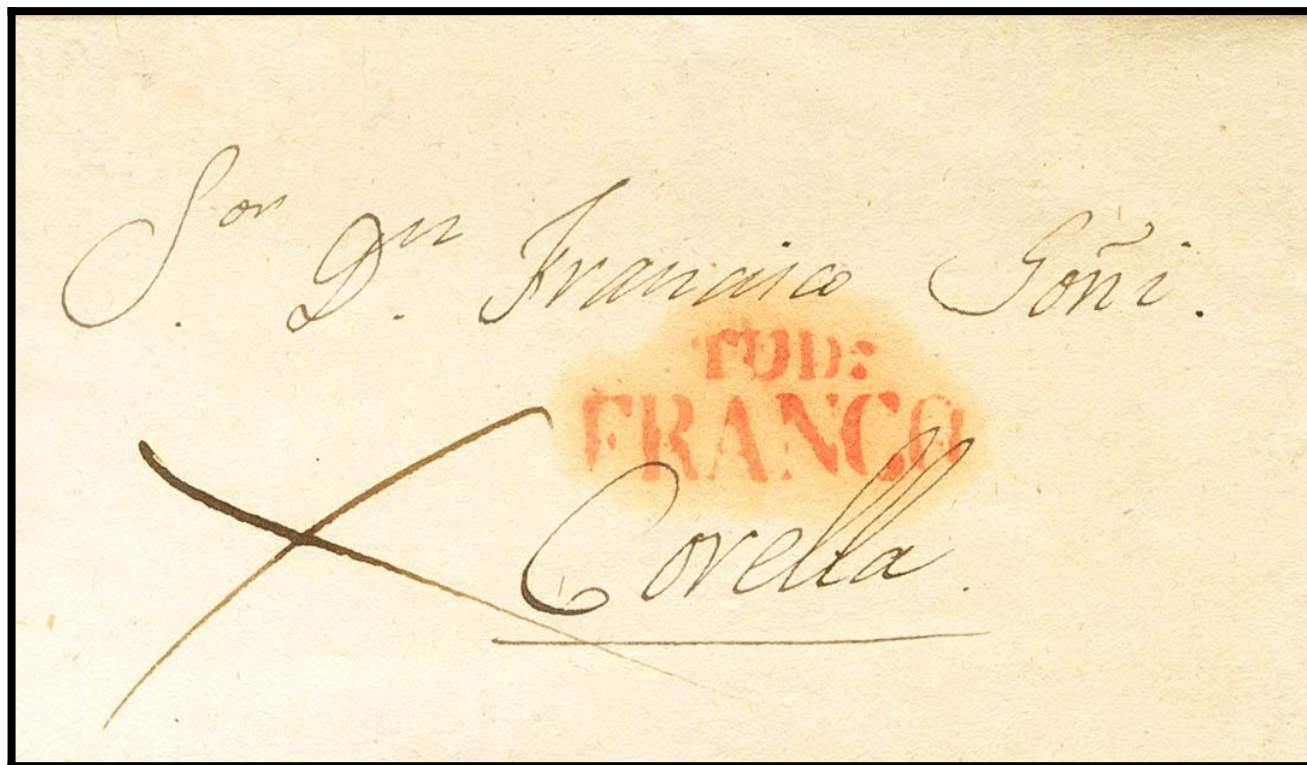 Sor. Dn. Francisco Goñi.
TUD:
FRANCO
Corella.